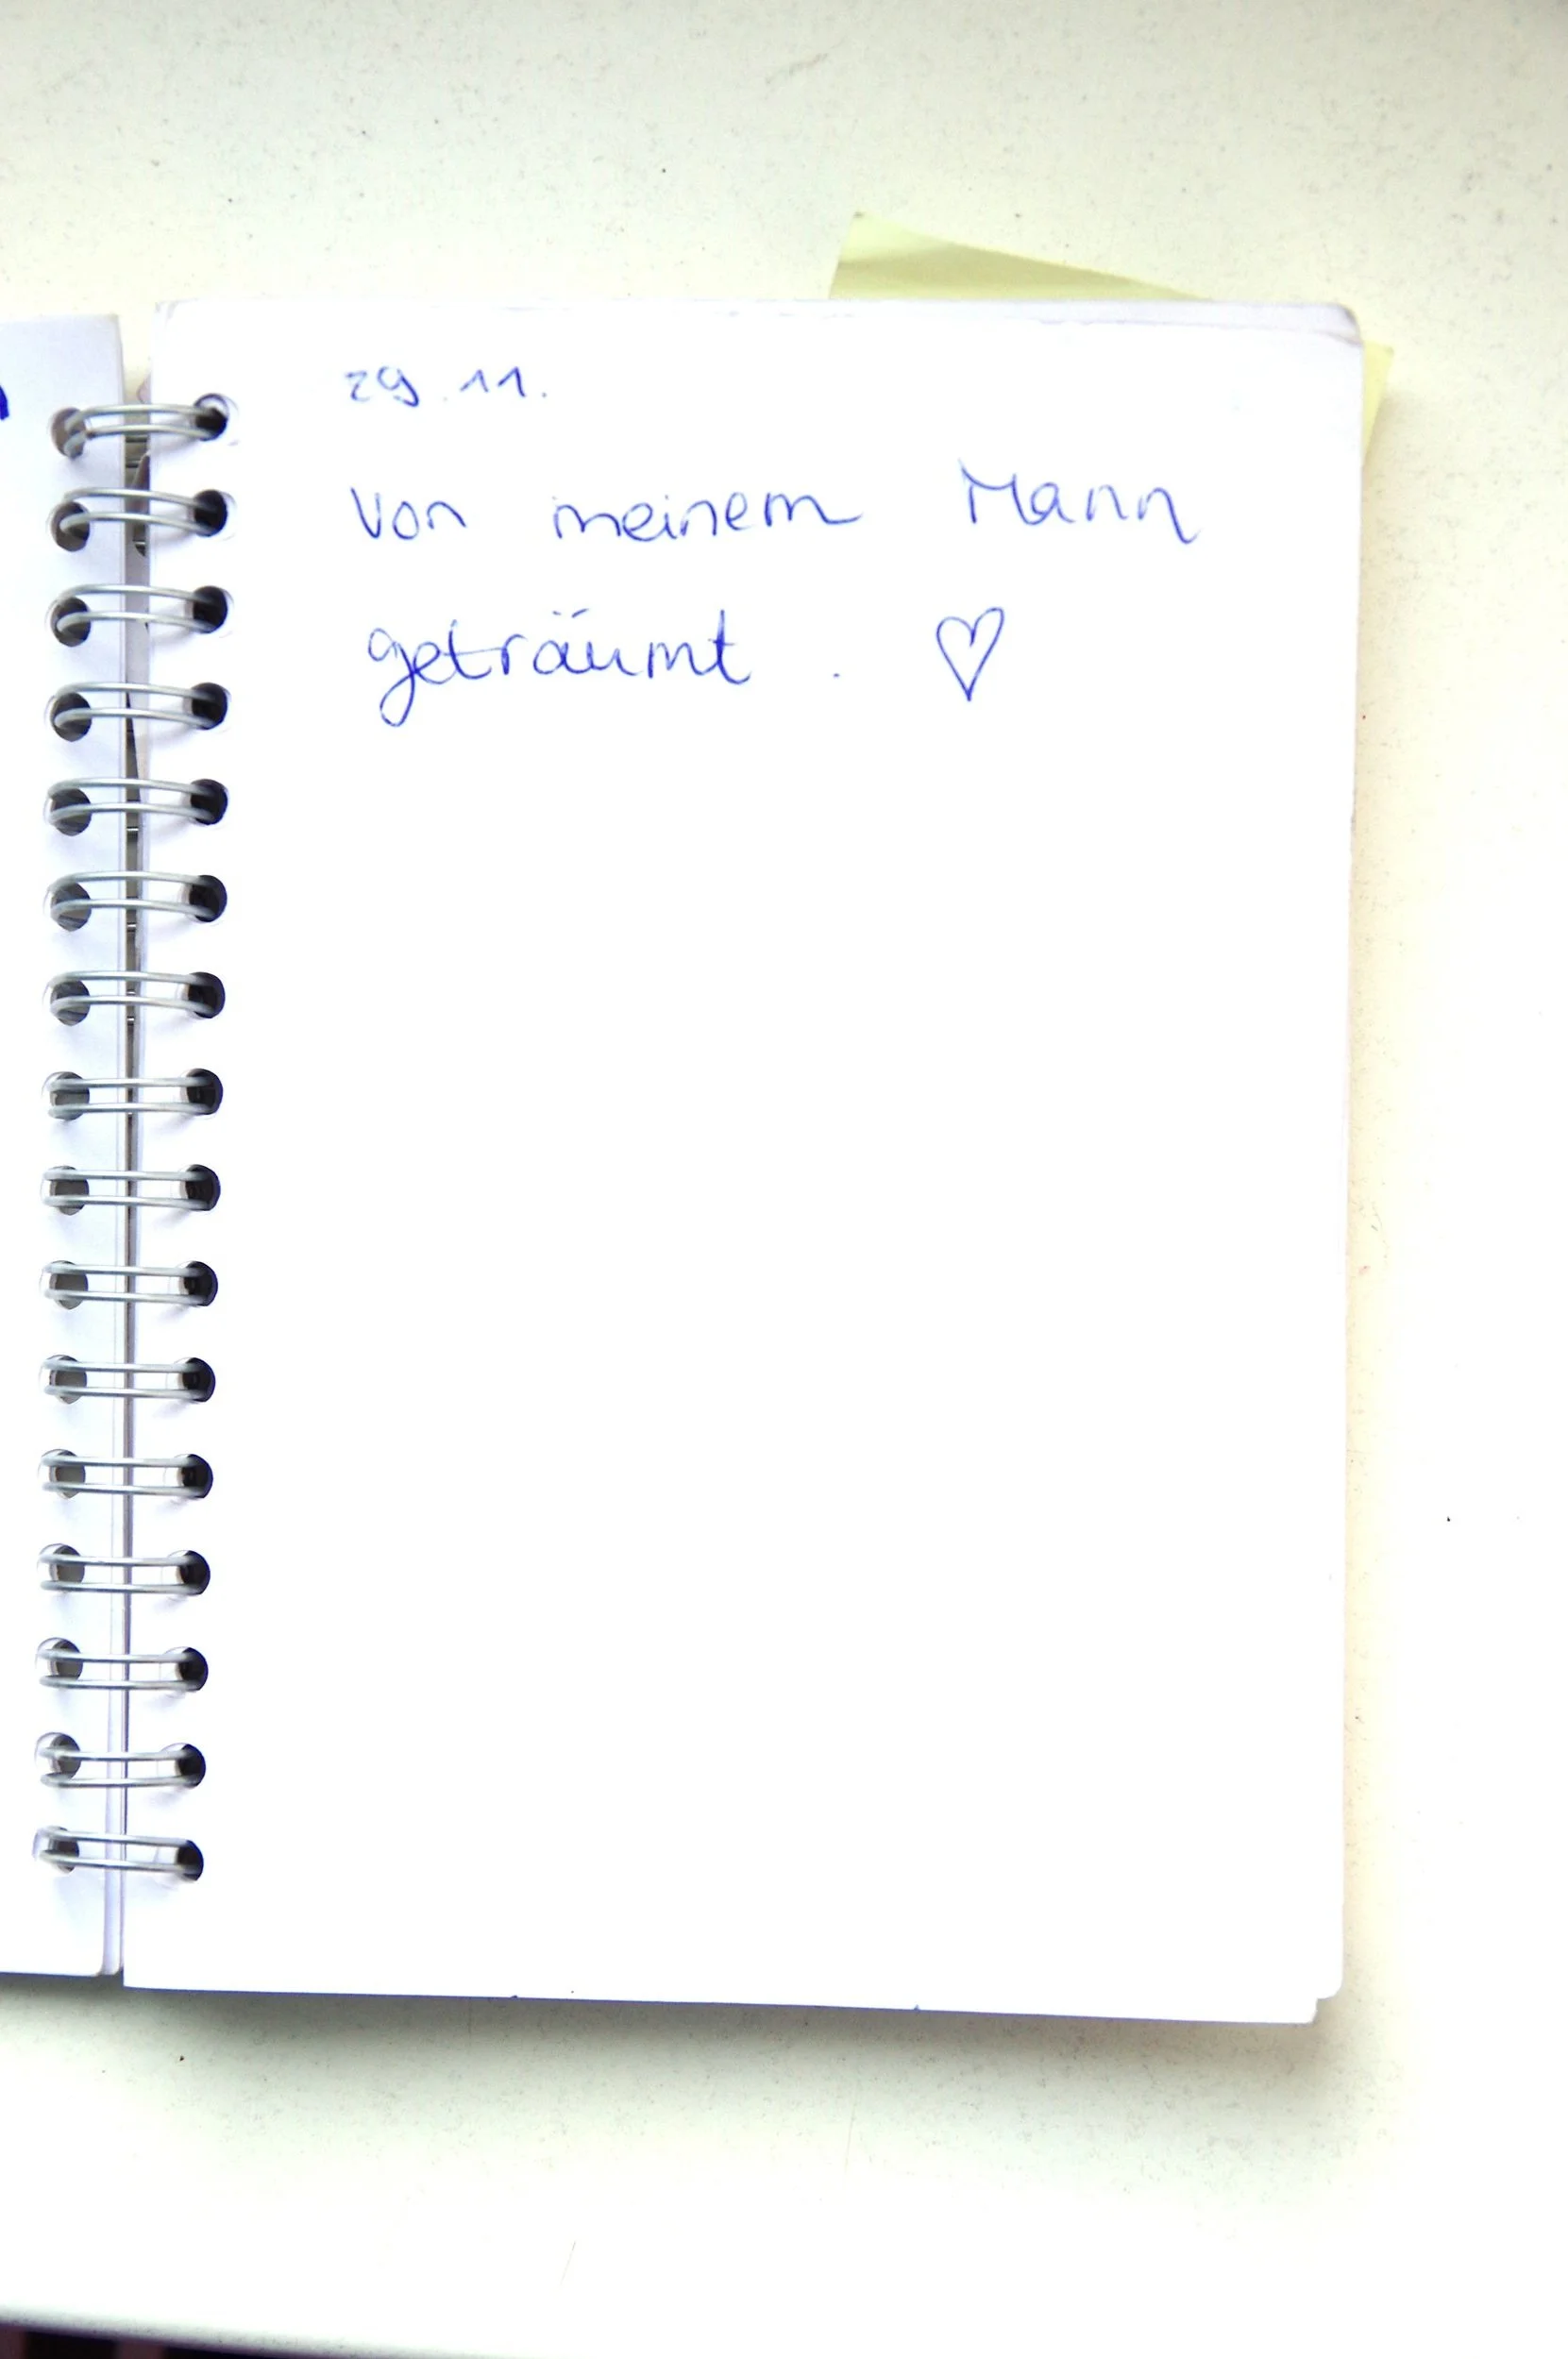 29.11.
Von meinem Mann
geträumt. ♡